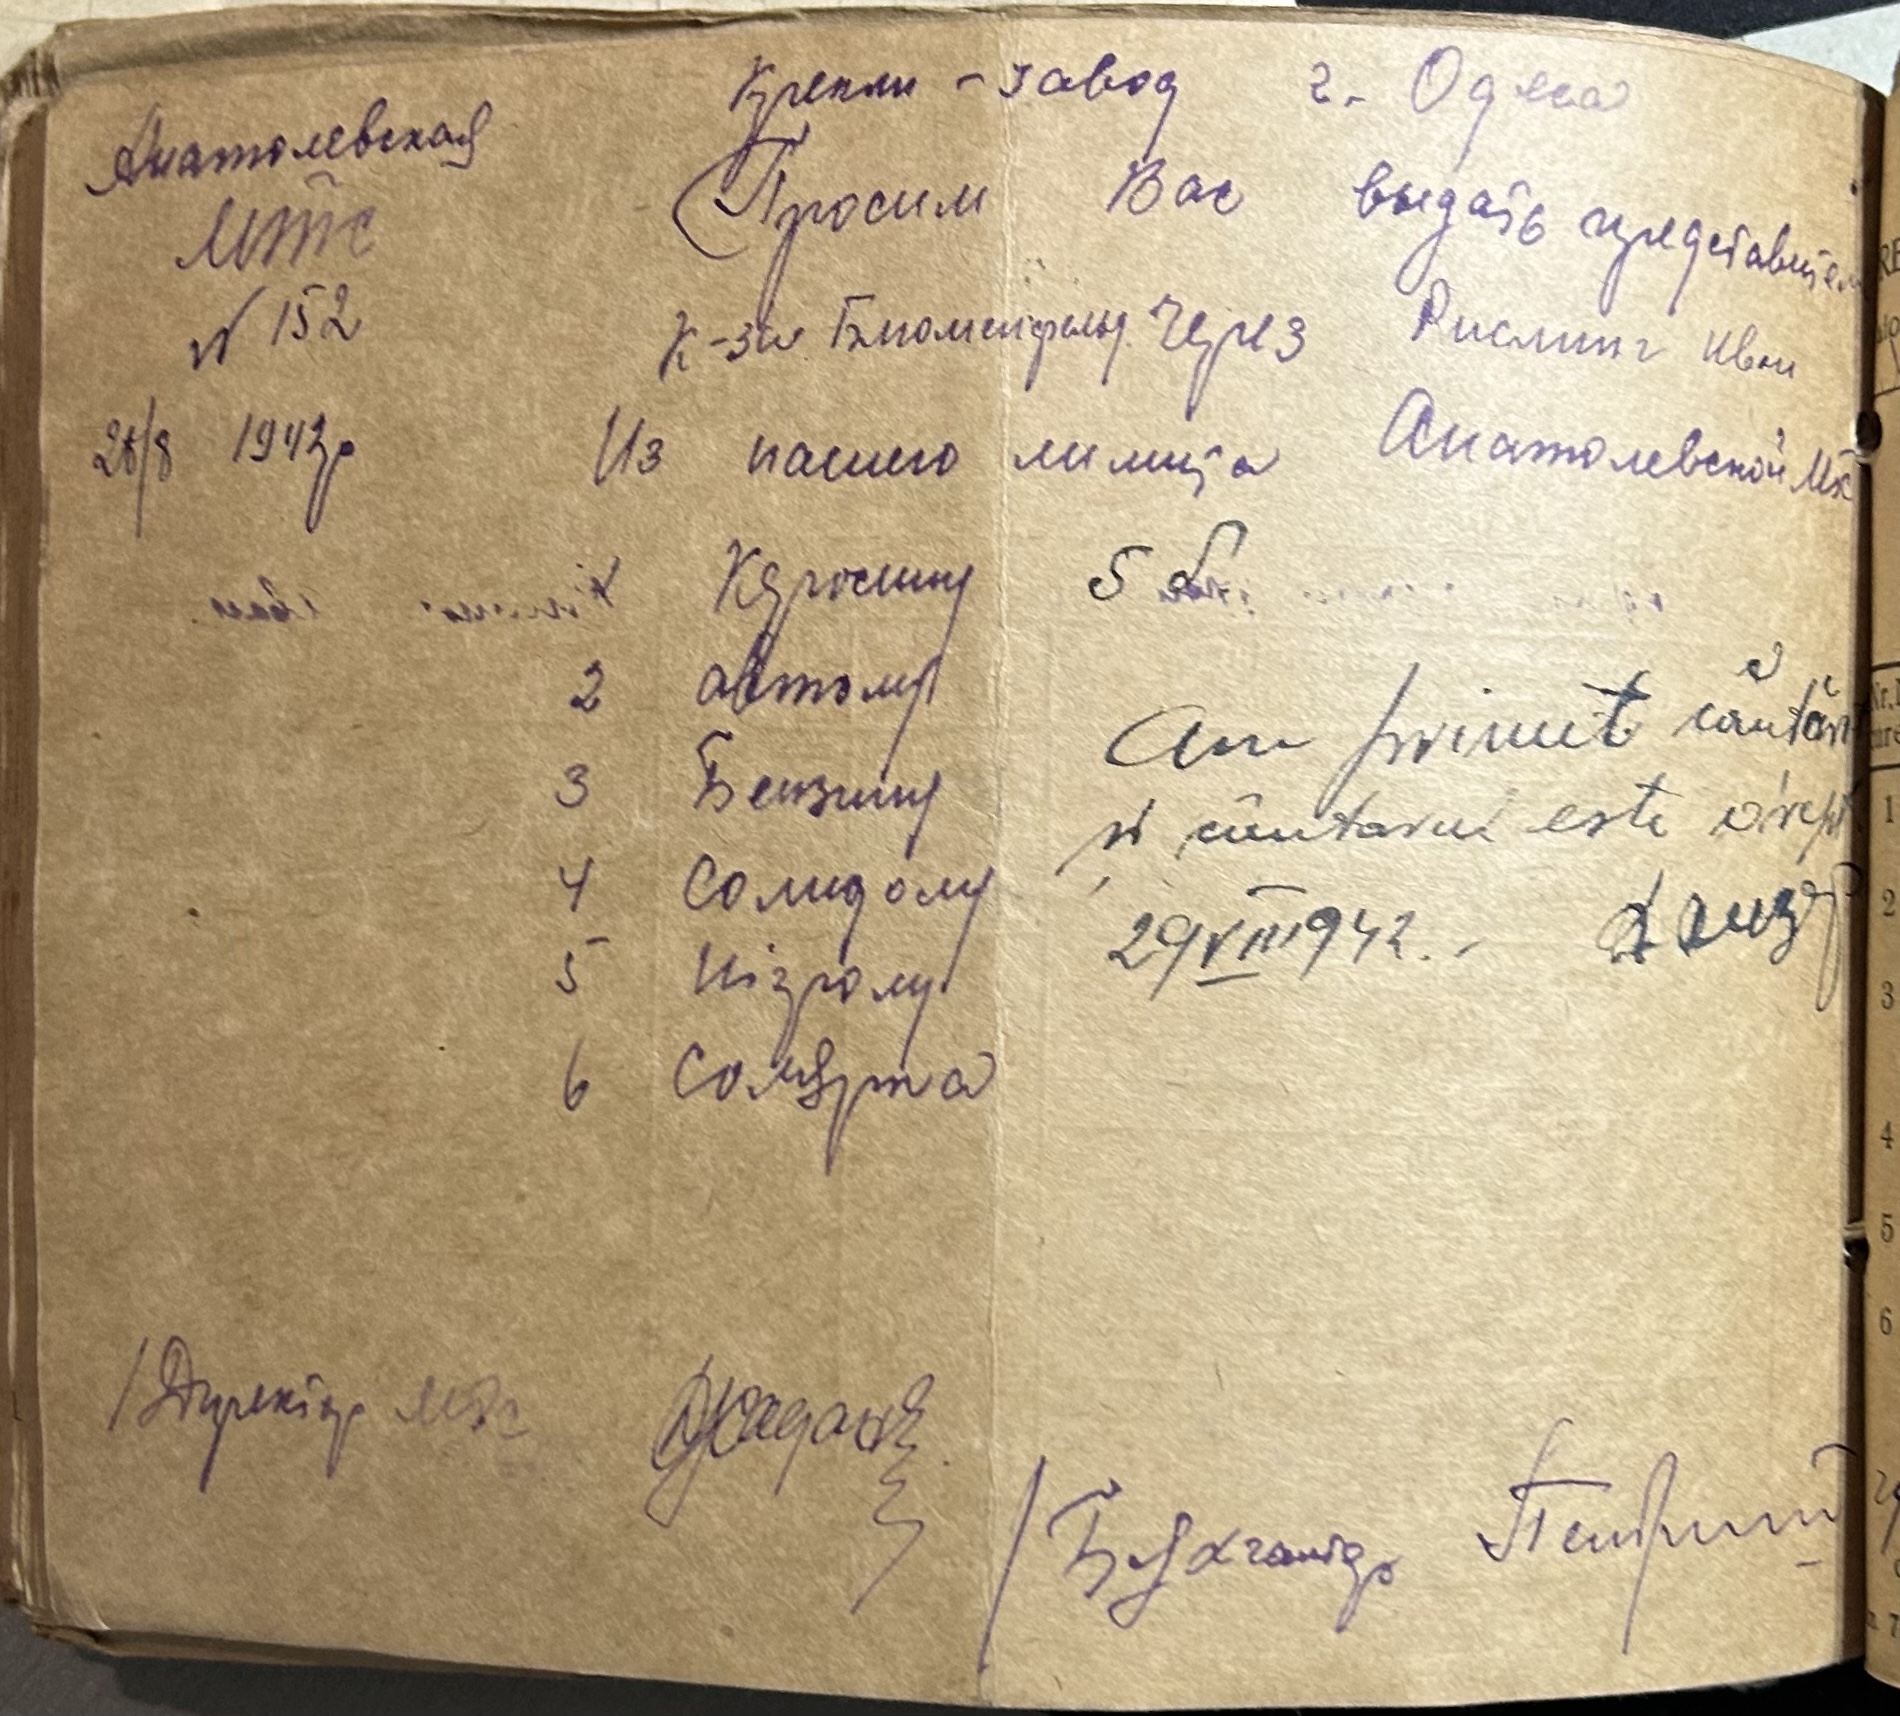 Анатолевская
МТС
№ 152
26/8 1942р
Крекли-завод г. Одеса
Просим Вас выдать представителю
К-за Блюменфельд. Через Рислинг Иван
Из нашего лимита Анатолевской Мтс
1 Керосину 5 б
2 автолу
3 Бензину
4 Солидолу
5 Нігролу
6
Am primit cantarit
si cantarul este drept
29 VIII 1942.-
/Директор Мтс
/Бухгалтер